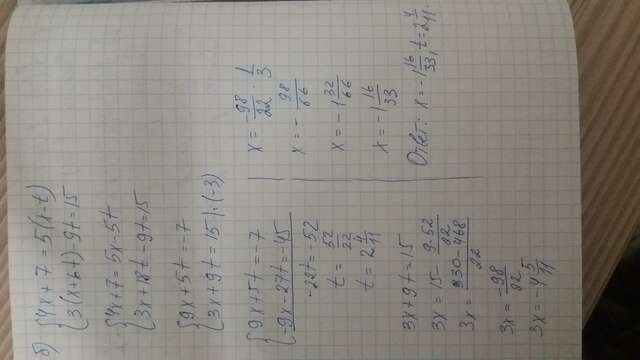 б) {4x + 7 = 5(x-t)
{3(x+6t)-9t=15
{4x+7=5x-5t
{3x+18t-9t=15
{9x+5t=-7
{3x+9t=15|·(-3)
{9x+5t=-7
{-9x-27t=-45
-22t=-52
t=52/22
t=2 4/11
3x+9t=15
3x=15-9·52/22
3x=330-468/22
3x=-98/22
3x=-4 5/11
x=-98/22·1/3
x=-98/66
x=-1 32/66
x=-1 16/33
Ответ: x=-1 16/33, t=2 4/11.